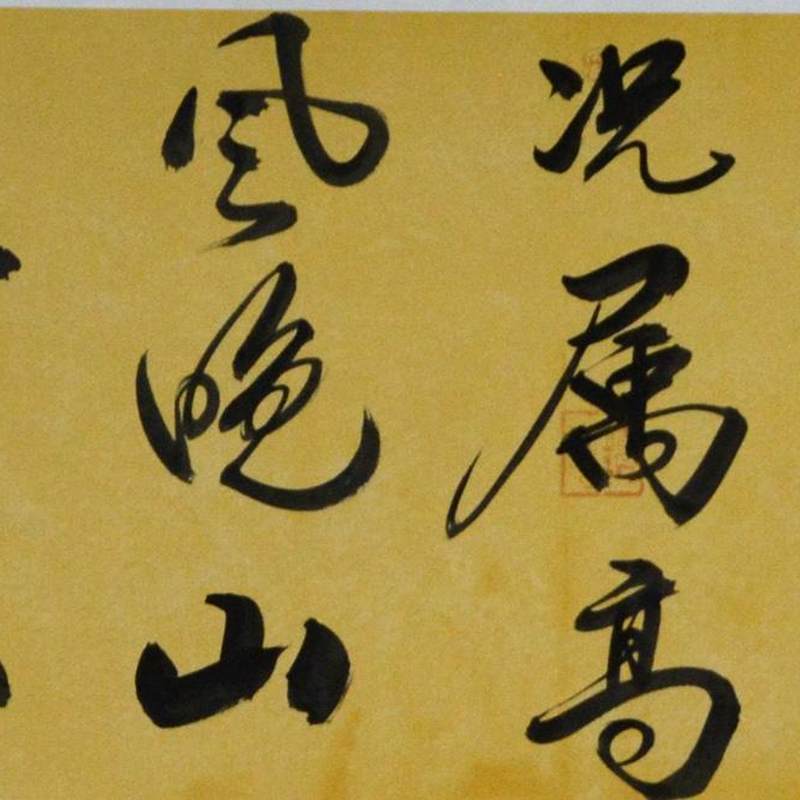 况属高
风晚山